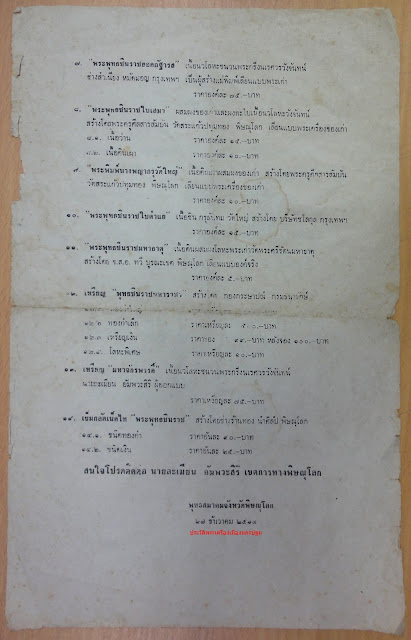 ๗. "พระพุทธชินราช เนื้อนวโลหะชนวนพระกริ่งนเรศวรวังจันทน์
ช่างสำเนียง หนัดมอญ กรุงเทพฯ เป็นผู้สร้างแม่พิมพ์เลียนแบบพระเก่า
ราคาองค์ละ ๗๕.-บาท
๘. "พระพุทธชินราชใบเสมา" ผสมผงของเก่าและผงตะไบเนื้อนวโลหะวังจันทน์
สร้างโดยพระครูศีลสารสัมบัน วัดสระแก้วปทุมทอง พิษณุโลก เลียนแบบพระเครื่องของเก่า
๘.๑. เนื้อว่าน ราคาองค์ละ ๑๕.-บาท
๘.๒. เนื้อดินเผา ราคาองค์ละ ๑๐.-บาท
๙. "พระพิมพ์นางพญากรุวัดใหญ่" เนื้อดินเผาผสมผงของเก่า สร้างโดยพระครูศีลสารสัมบัน
วัดสระแก้วปทุมทอง พิษณุโลก เลียนแบบพระเครื่องของเก่า
ราคาองค์ละ ๑๐.-บาท
๑๐. "พระพุทธชินราชใบลำแล" เนื้อชิน กรุอัฏฐารส วัดใหญ่ สร้างโดย บริษัทชโลกุล กรุงเทพฯ
ราคาองค์ละ ๑๕.-บาท
๑๑. "พระพุทธชินราชมหาธาตุ" เนื้อดินผสมผงโลหะพระเก่าวัดพระศรีรัตนมหาธาตุ
สร้างโดย จ.ส.อ. ทวี บูรณะเขต พิษณุโลก เลียนแบบองค์จริง
ราคาองค์ละ ๕.-บาท
๒. เหรียญ "พุทธชินราชมหาราชา" สร้างโดย กองกระษาปณ์ กรมธนารักษ์
๑๒.๒ ทองคำเล็ก ราคาเหรียญละ
๑๒.๓ เหรียญเงิน ๑๐๐.-บาท
๑๒.๔ โลหะพิเศษ ราคาเหรียญละ ๑๐.-บาท
๑๓. เหรียญ "มหาจักรพรรดิ์" เนื้อนวโลหะชนวนพระกริ่งนเรศวรวังจันทน์
นายละเมียน อัมพวะสิริ ผู้ออกแบบ
ราคาเหรียญละ ๗๕.-บาท
๑๔. เข็มกลัดเน็คไท "พระพุทธชินราช" สร้างโดยช่างร้านทอง นำศิลป พิษณุโลก
๑๔.๑. ชนิดทองคำ ราคาอันละ ๙๐.-บาท
๑๔.๒. ชนิดเงิน ราคาอันละ ๒๕.-บาท
สนใจโปรดติดต่อ นายละเมียน อัมพวะสิริ เขตการทางพิษณุโลก
พุทธสมาคมจังหวัดพิษณุโลก
ธันวาคม